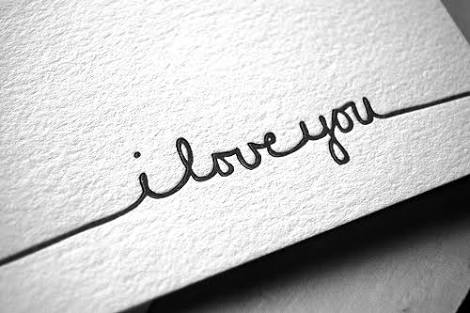 i love you